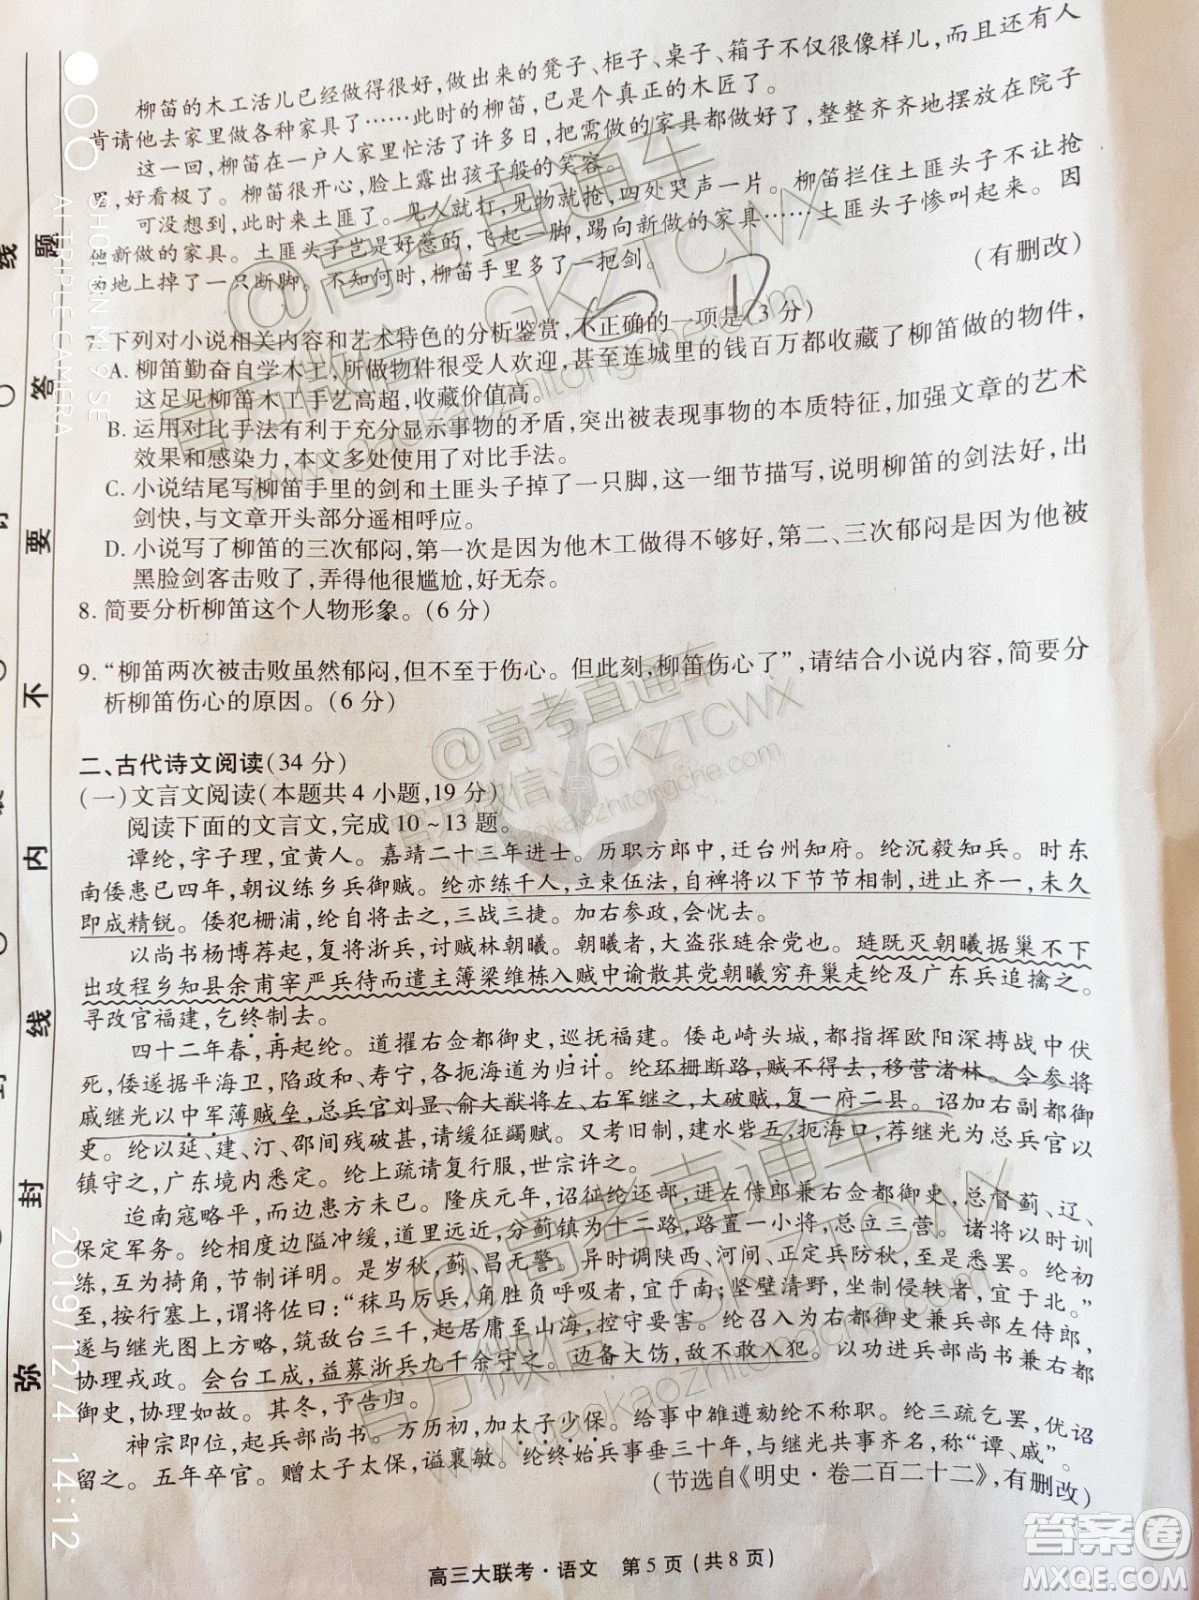 柳笛的木工活儿已经做得很好,做出来的凳子、柜子、桌子、箱子不仅很像样儿,而且还有人
肯请他去家里做各种家具了……此时的柳笛,已是个真正的木匠了。
这一回,柳笛在一户人家里忙活了许多日,把需做的家具都做好了,整整齐齐地摆放在院子
里,好看极了。柳笛很开心,脸上露出孩子般的笑容。
可没想到,此时来土匪了。见人就打,见物就抢,四处哭声一片。柳笛拦住土匪头子不让抢
他新做的家具。土匪头子岂是好惹的,飞起一脚,踢向新做的家具……土匪头子惨叫起来。因
为地上掉了一只断脚。不知何时,柳笛手里多了一把剑。
(有删改)
7. 下列对小说相关内容和艺术特色的分析鉴赏,不正确的一项是(3 分)
A. 柳笛勤奋自学木工,所做物件很受人欢迎,甚至连城里的钱百万都收藏了柳笛做的物件,
这足见柳笛木工手艺高超,收藏价值高。
B. 运用对比手法有利于充分显示事物的矛盾,突出被表现事物的本质特征,加强文章的艺术
效果和感染力,本文多处使用了对比手法。
C. 小说结尾写柳笛手里的剑和土匪头子掉了一只脚,这一细节描写,说明柳笛的剑法好,出
剑快,与文章开头部分遥相呼应。
D. 小说写了柳笛的三次郁闷,第一次是因为他木工做得不够好,第二、三次郁闷是因为他被
黑脸剑客击败了,弄得他很尴尬,好无奈。
8. 简要分析柳笛这个人物形象。(6 分)
9. “柳笛两次被击败虽然郁闷,但不至于伤心。但此刻,柳笛伤心了”,请结合小说内容,简要分
析柳笛伤心的原因。(6 分)
二、古代诗文阅读(34 分)
(一)文言文阅读(本题共 4 小题,19 分)
阅读下面的文言文,完成 10~13 题。
谭纶,字子理,宜黄人。嘉靖二十三年进士。历职方郎中,迁台州知府。纶沉毅知兵。时东
南倭患已四年,朝议练乡兵御贼。纶亦练千人,立束伍法,自裨将以下节节相制,进止齐一,未久
即成精锐。倭犯栅浦,纶自将击之,三战三捷。加右参政,会忧去。
以尚书杨博荐起,复将浙兵,讨贼林朝曦。朝曦者,大盗张琏余党也。琏既灭朝曦据巢不下
出攻程乡知县余甫宰严兵待而遣主簿梁维栋入贼中谕散其党朝曦穷弃巢走纶及广东兵追擒之。
寻改官福建,乞终制去。
四十二年春,再起纶。道擢右佥都御史,巡抚福建。倭屯崎头城,都指挥欧阳深搏战中伏
死,倭遂据平海卫,陷政和、寿宁,各扼海道为归计。纶环栅断路,贼不得去,移营渚林。令参将
戚继光以中军薄贼垒,总兵官刘显、俞大猷将左、右军继之,大破贼,复一府二县。诏加右副都御
史。纶以延、建、汀、邵间残破甚,请缓征蠲赋。又考旧制,建水砦五,扼海口,荐继光为总兵官以
镇守之,广东境内悉定。纶上疏请复行服,世宗许之。
迨南寇略平,而边患方未已。隆庆元年,诏征纶还部,进左侍郎兼右佥都御史,总督蓟、辽、
保定军务。纶相度边隘冲缓,道里远近,分蓟镇为十二路,路置一小将,总立三营。诸将以时训
练,互为掎角,节制详明。是岁秋,蓟、昌无警。异时调陕西、河间、正定兵防秋,至是悉罢。纶初
至,按行塞上,谓将佐曰:“秣马厉兵,角胜负呼吸者,宜于南;坚壁清野,坐制侵轶者,宜于北。”
遂与继光图上方略,筑敌台三千,起居庸至山海,控守要害。纶召入为右都御史兼兵部左侍郎,
协理戎政。会台工成,益募浙兵九千余守之。边备大饬,敌不敢入犯。以功进兵部尚书兼右都
御史,协理如故。其冬,予告归。
神宗即位,起兵部尚书。万历初,加太子少保。给事中雒遵劾纶不称职。纶三疏乞罢,优诏
留之。五年卒官。赠太子太保,谥襄敏。纶终始兵事垂三十年,与继光共事齐名,称“谭、戚”。
(节选自《明史·卷二百二十二》,有删改)
高三大联考·语文 第 5 页 (共 8 页)
弥 封 线 内 不 要 答 题
SHOT ON MI 9 SE
AI TRIPLE CAMERA
2019/12/4 14:12
@高考直通车
官方微信:GKZTCWX
www.gaokaozhitongche.com
@高考直通车
官方微信:GKZTCWX
www.gaokaozhitongche.com
@高考直通车
官方微信:GKZTCWX
www.gaokaozhitongche.com
答案圈
MXQE.COM